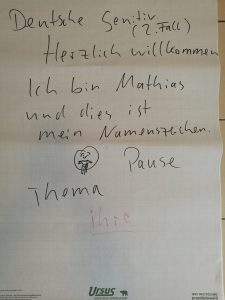 Deutsche Senitiv
(2. Fall)
Herzlich willkommen
Ich bin Mathias
und dies ist
mein Namenszeichen.
Pause
Thema
ihre
Ursus